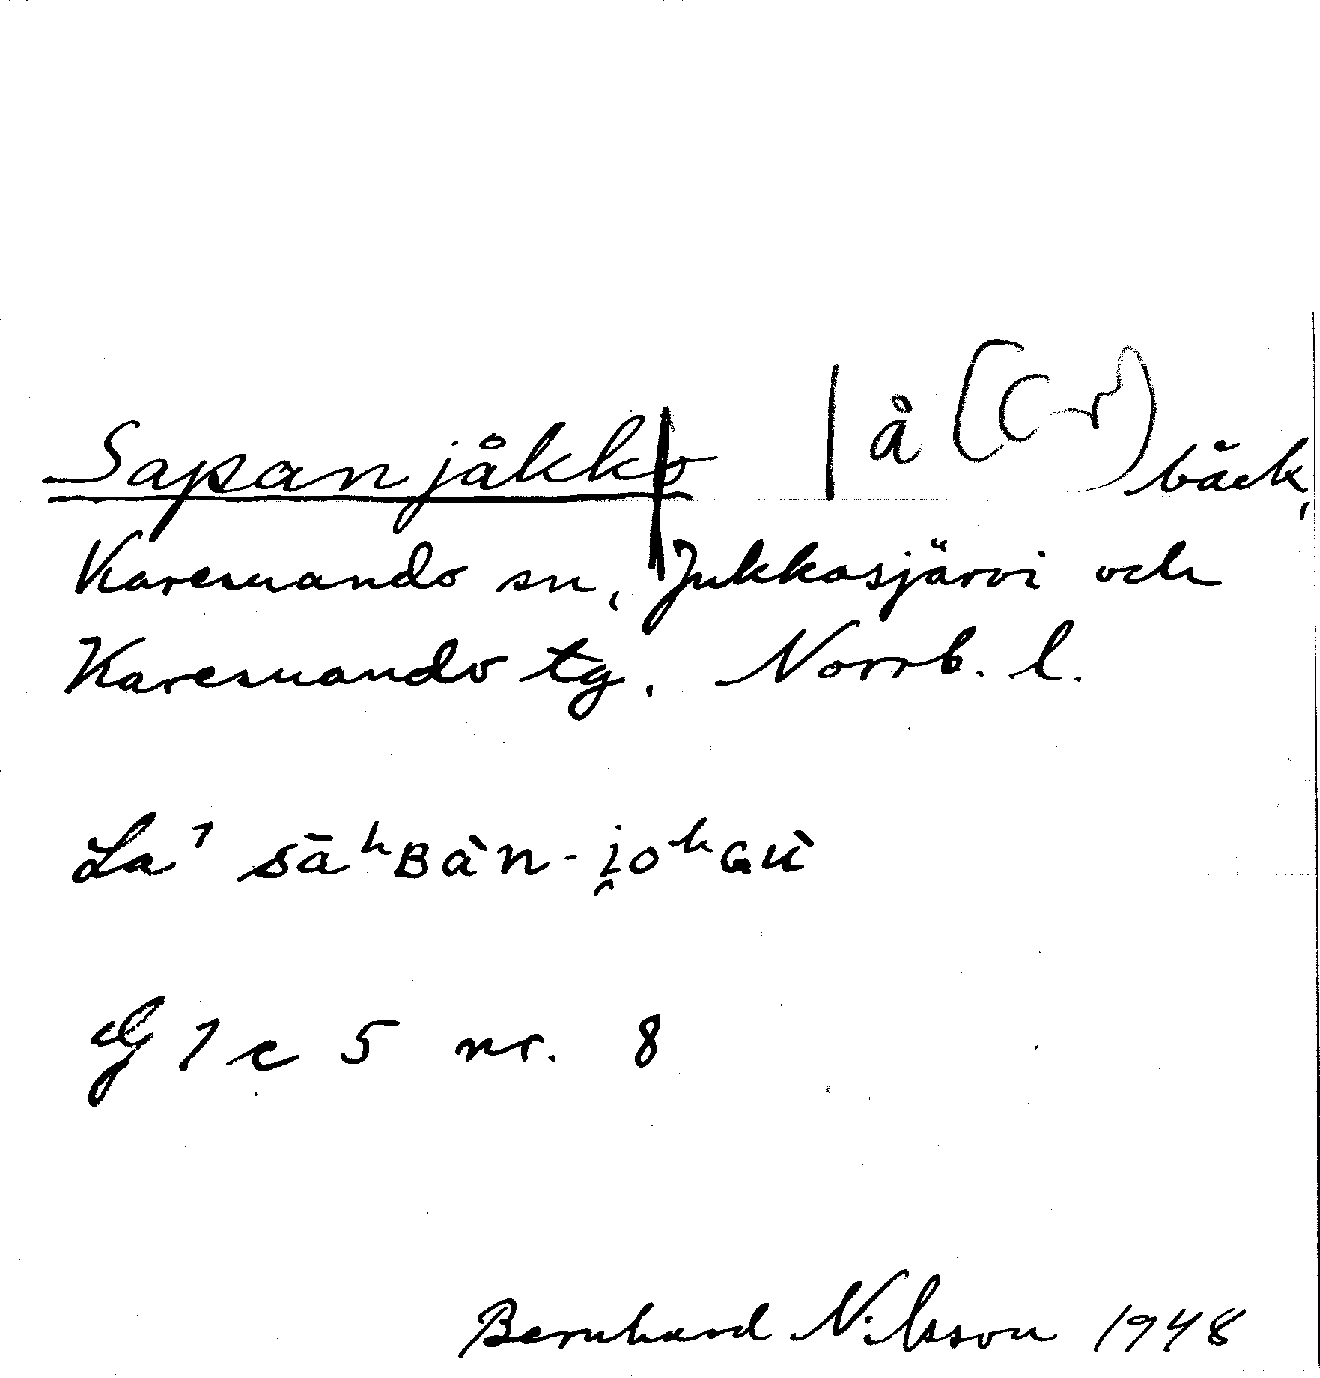 Sapanjåkko | å bäck,
Karesuando sn, Jukkasjärvi och
Karesuando tg. Norrb. l.
La¹ sāʰBȧ̀n-i̯oʰGù
G 1 c 5 nr. 8
Bernhard Nilsson 1948